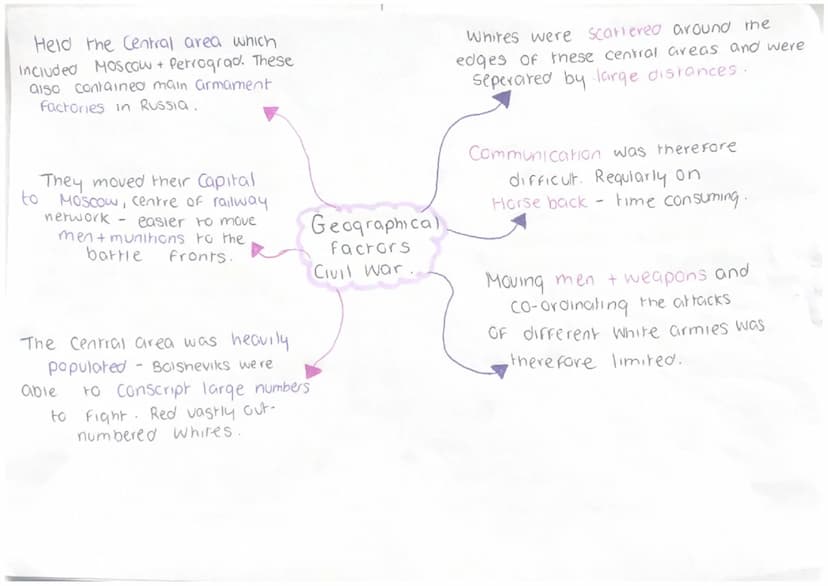 Held the central area which
included Moscow + Petrograd. These
also contained main armament
factories in Russia.
They moved their capital
to Moscow, centre of railway
network - easier to move
men + munitions to the
battle fronts.
The central area was heavily
populated - Bolsheviks were
able to conscript large numbers
to fight. Red vastly out-
numbered whites.
Geographical
factors
Civil war.
Whites were scattered around the
edges of these central areas and were
seperated by large distances.
Communication was therefore
difficult. Regularly on
Horse back - time consuming.
Moving men + weapons and
co-ordinating the attacks
of different white armies was
therefore limited.